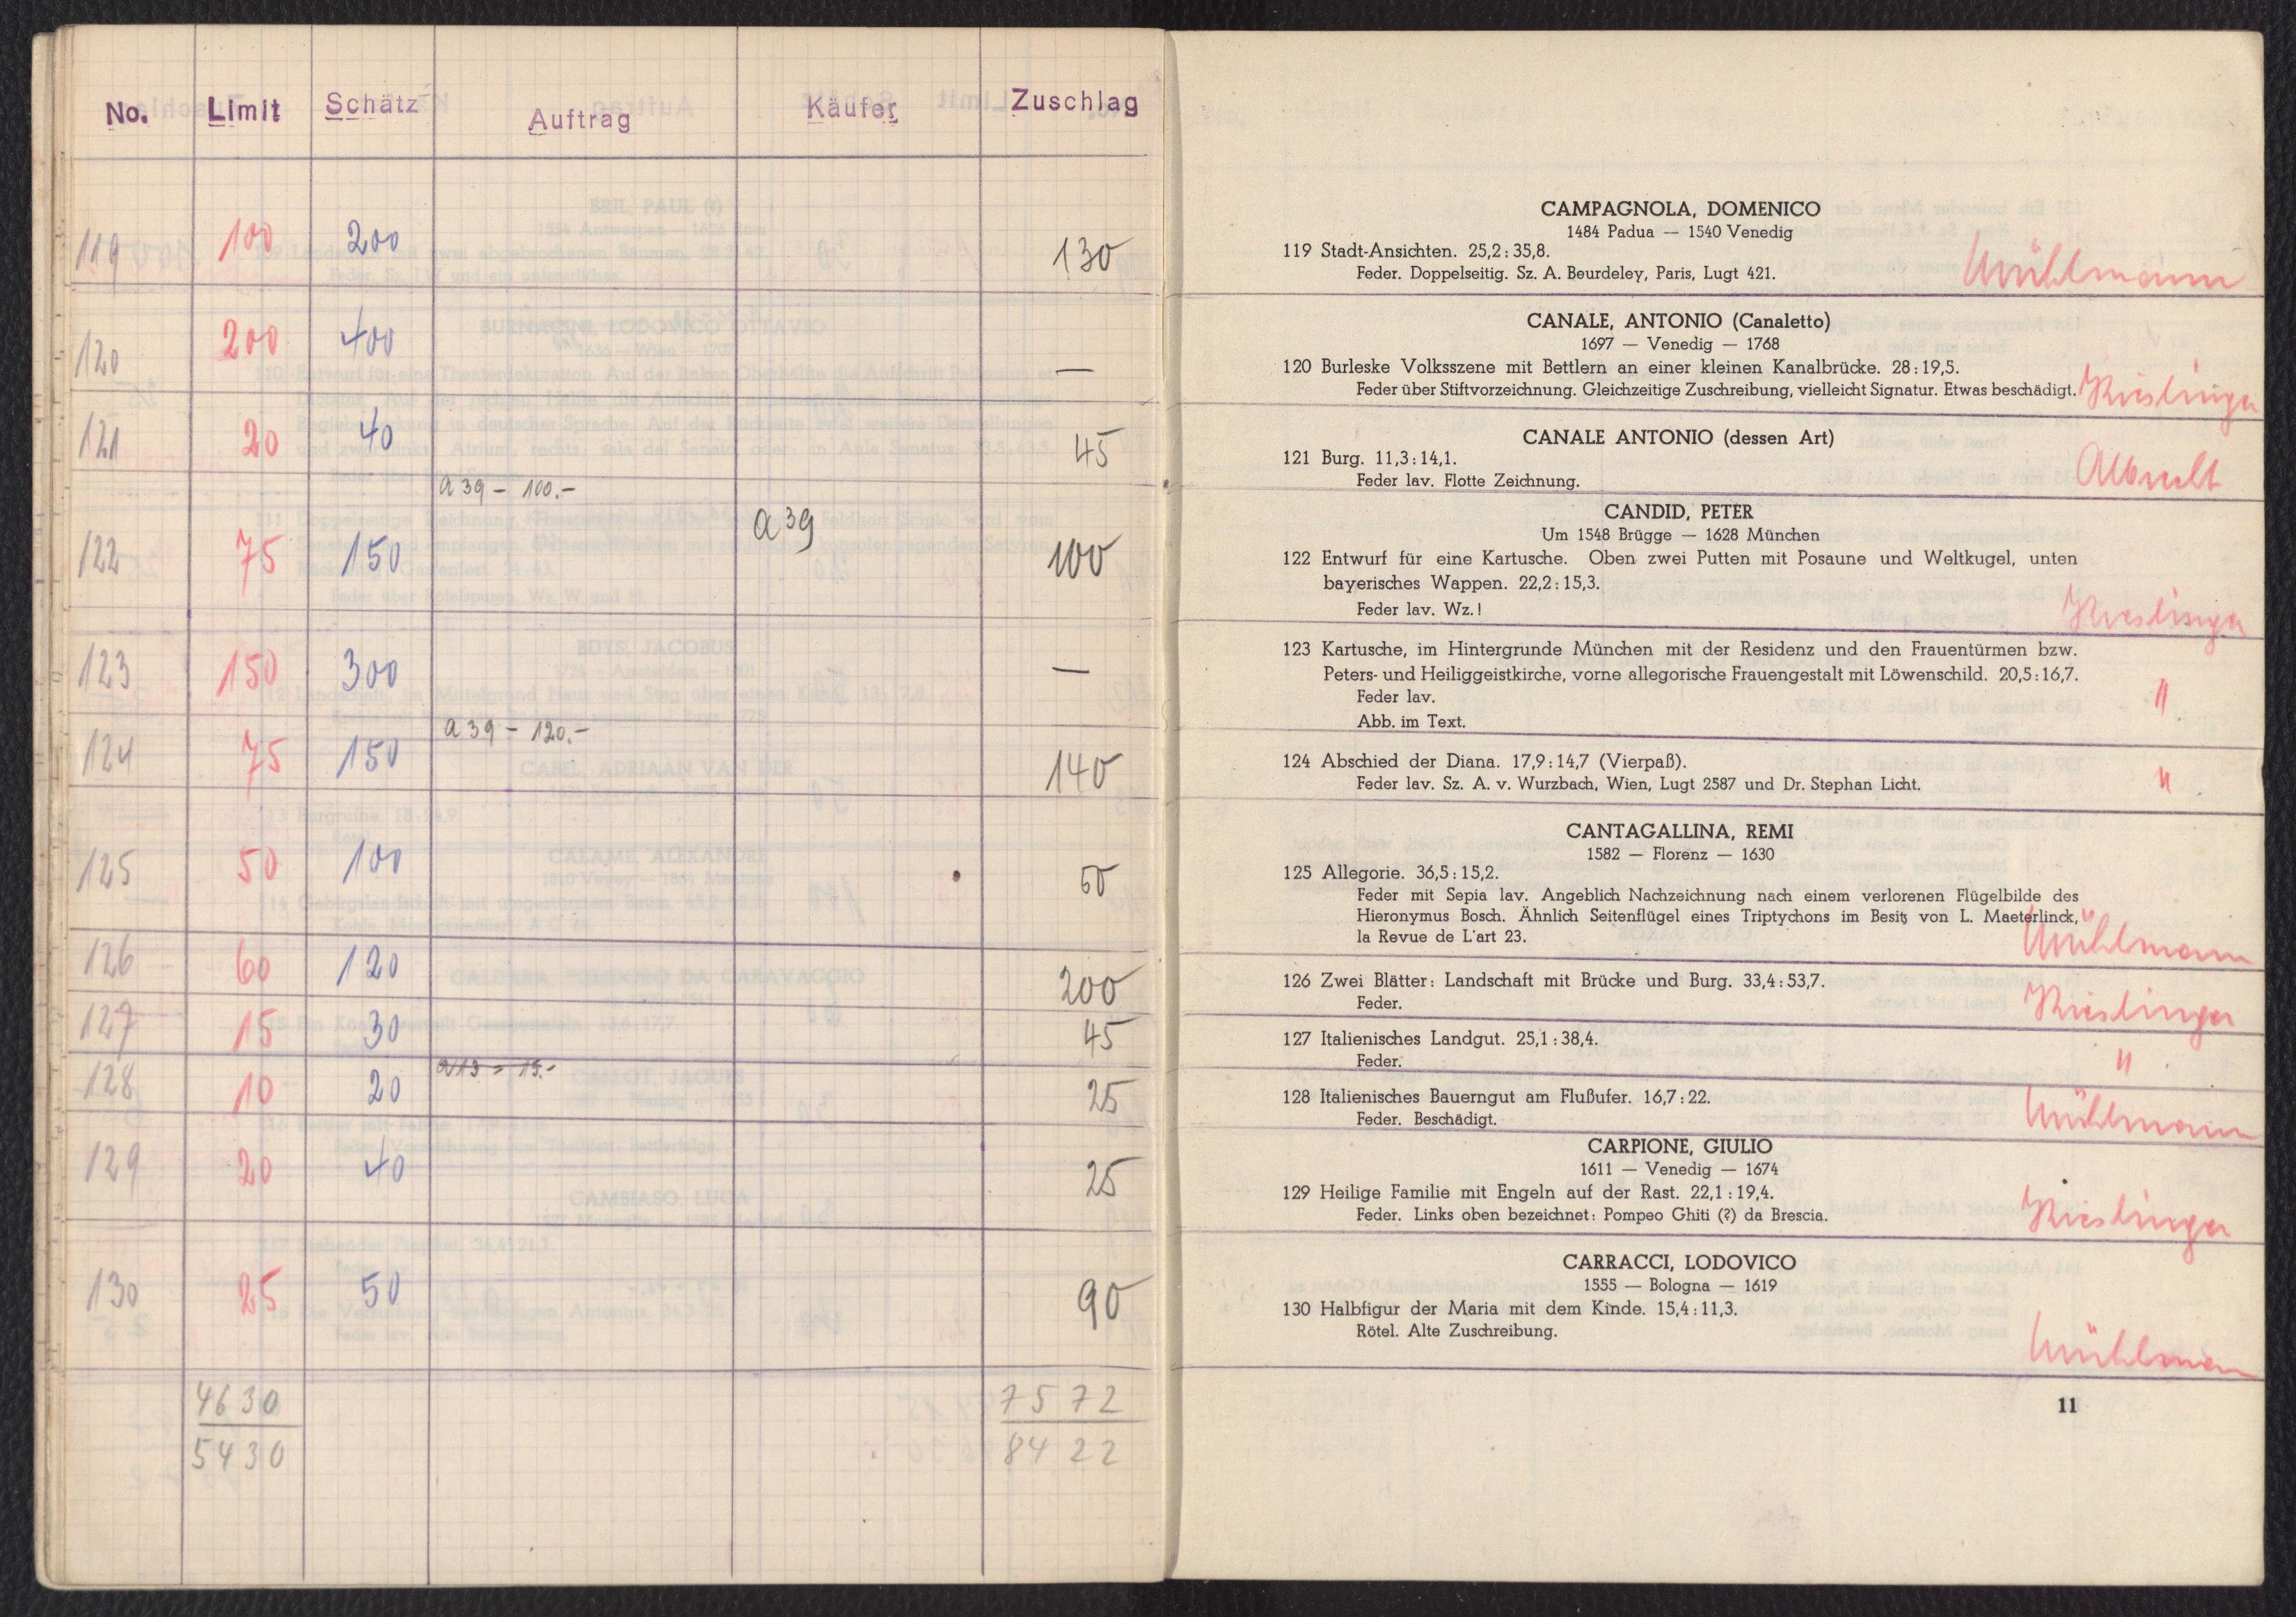 No. Limit Schätz Auftrag Käufer Zuschlag
119 100 200 130
120 200 400 —
121 20 40 45
a 39 – 100.–
122 75 150 a 39 100
123 150 300 —
a 39 – 120.–
124 75 150 140
125 50 100 50
126 60 120 200
127 15 30 45
a 13 – 15.–
128 10 20 25
129 20 40 25
130 25 50 90
4630 7572
5430 8422
CAMPAGNOLA, DOMENICO
1484 Padua — 1540 Venedig
119 Stadt-Ansichten. 25,2 : 35,8.
Feder. Doppelseitig. Sz. A. Beurdeley, Paris, Lugt 421.
Mühlmann
CANALE, ANTONIO (Canaletto)
1697 — Venedig — 1768
120 Burleske Volksszene mit Bettlern an einer kleinen Kanalbrücke. 28 : 19,5.
Feder über Stiftvorzeichnung. Gleichzeitige Zuschreibung, vielleicht Signatur. Etwas beschädigt.
Kieslinger
CANALE ANTONIO (dessen Art)
121 Burg. 11,3 : 14,1.
Feder lav. Flotte Zeichnung.
Albrecht
CANDID, PETER
Um 1548 Brügge — 1628 München
122 Entwurf für eine Kartusche. Oben zwei Putten mit Posaune und Weltkugel, unten
bayerisches Wappen. 22,2 : 15,3.
Feder lav. Wz. !
Kieslinger
123 Kartusche, im Hintergrunde München mit der Residenz und den Frauentürmen bzw.
Peters- und Heiliggeistkirche, vorne allegorische Frauengestalt mit Löwenschild. 20,5 : 16,7.
Feder lav. "
Abb. im Text.
124 Abschied der Diana. 17,9 : 14,7 (Vierpaß).
Feder lav. Sz. A. v. Wurzbach, Wien, Lugt 2587 und Dr. Stephan Licht. "
CANTAGALLINA, REMI
1582 — Florenz — 1630
125 Allegorie. 36,5 : 15,2.
Feder mit Sepia lav. Angeblich Nachzeichnung nach einem verlorenen Flügelbilde des
Hieronymus Bosch. Ähnlich Seitenflügel eines Triptychons im Besitz von L. Maeterlinck,
la Revue de L'art 23.
Mühlmann
126 Zwei Blätter: Landschaft mit Brücke und Burg. 33,4 : 53,7.
Feder. Kieslinger
127 Italienisches Landgut. 25,1 : 38,4.
Feder. "
128 Italienisches Bauerngut am Flußufer. 16,7 : 22.
Feder. Beschädigt. Mühlmann
CARPIONE, GIULIO
1611 — Venedig — 1674
129 Heilige Familie mit Engeln auf der Rast. 22,1 : 19,4.
Feder. Links oben bezeichnet: Pompeo Ghiti (?) da Brescia. Kieslinger
CARRACCI, LODOVICO
1555 — Bologna — 1619
130 Halbfigur der Maria mit dem Kinde. 15,4 : 11,3.
Rötel. Alte Zuschreibung.
Mühlmann
11